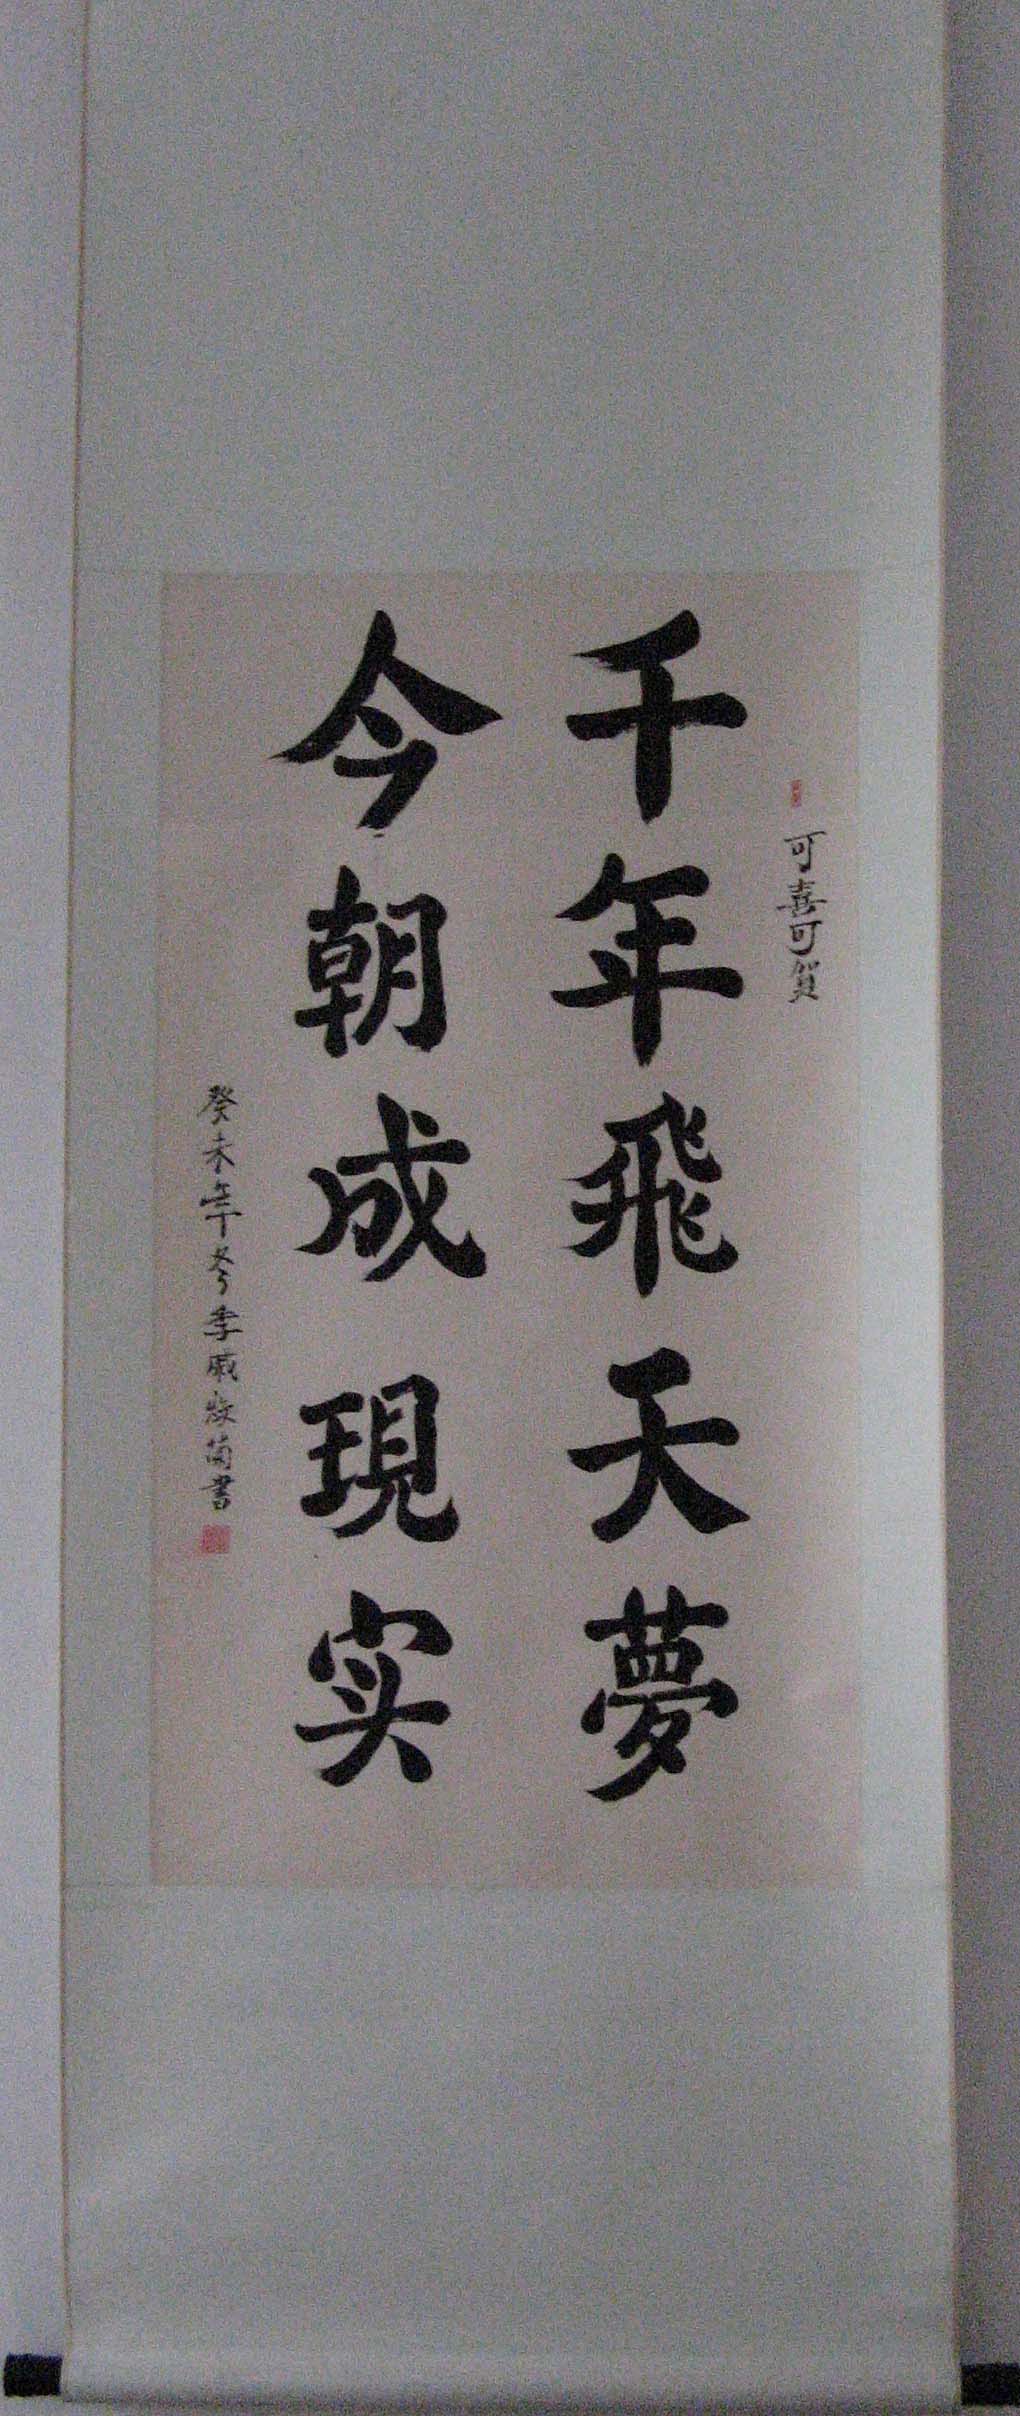 可喜可贺
千年飛天夢
今朝成現实
癸未年冬季戚牧菊書